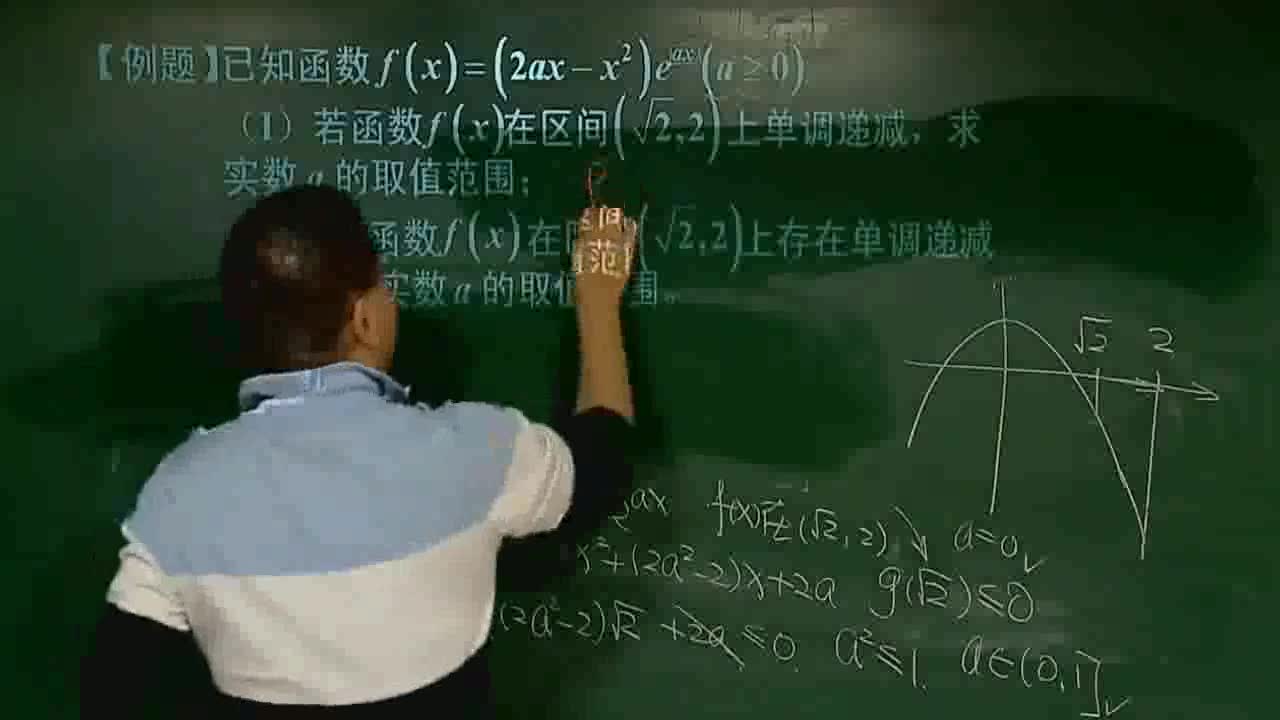 【例题】已知函数 f(x)=(2ax-x²)e^{ax}(a≥0)
(1) 若函数f(x)在区间(√2,2)上单调递减，求
实数 a 的取值范围；
函数f(x)在区间(√2,2)上存在单调递减
实数 a 的取值范围。
√2 2
e^{ax} f(x)在(√2,2)↘ a=0✓
x²+(2a²-2)x+2a g(√2)≤0
(2a²-2)√2 +2a≤0 a²≤1. a∈(0,1]✓